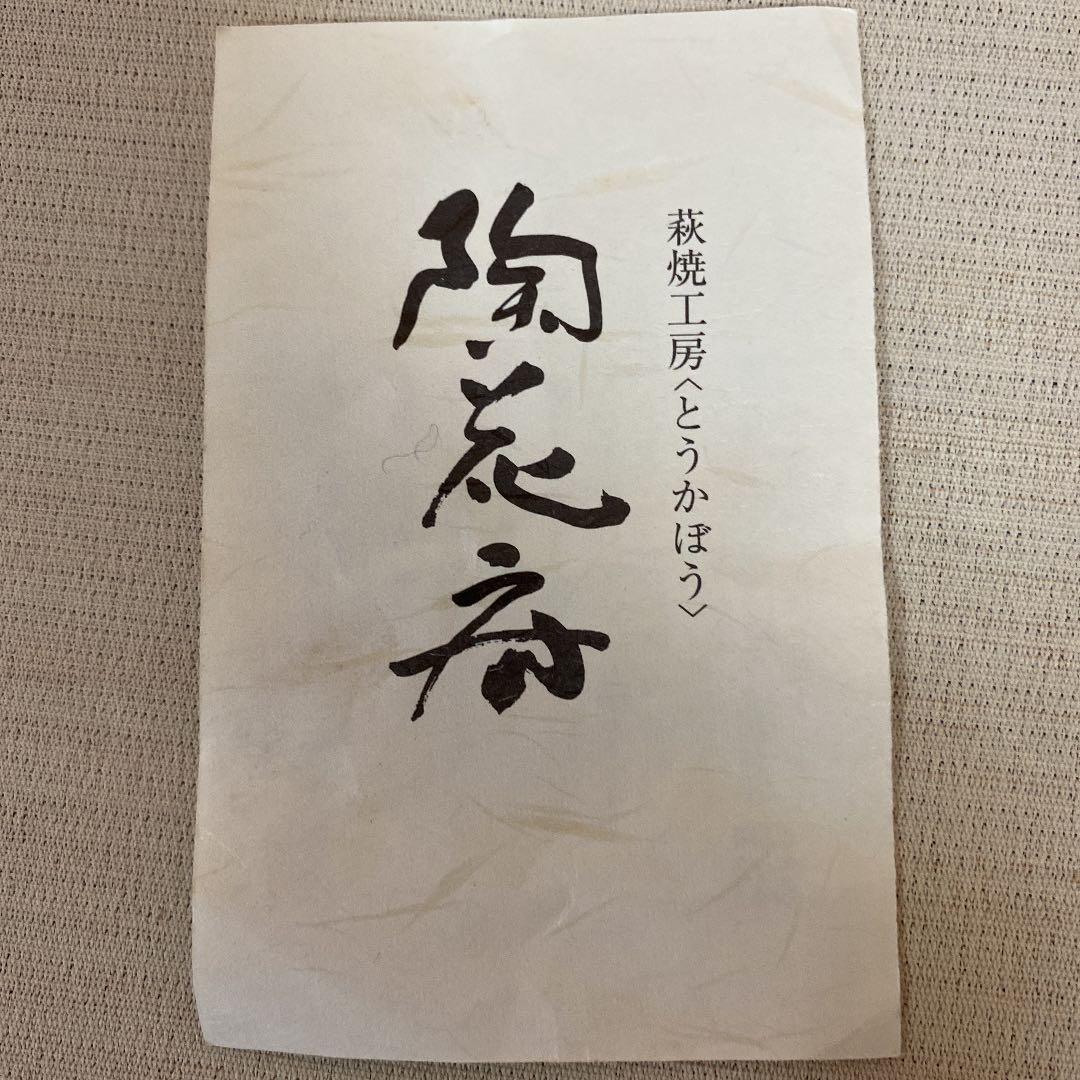 萩焼工房〈とうかぼう〉
陶花房